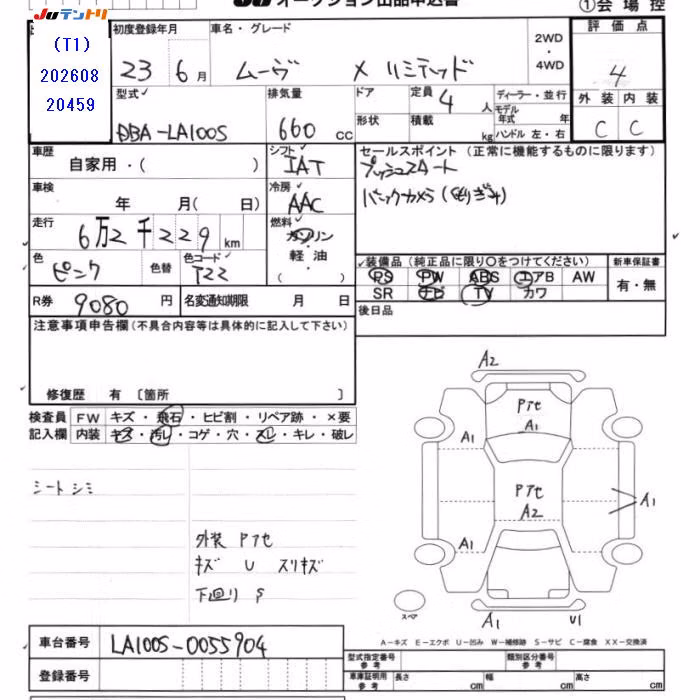 JU オークション出品申込書
①会場控
Juテントリ
(T1)
202608
20459
初度登録年月
23 6月
車名・グレード
ムーヴ X リミテッド
2WD
・
4WD
評価点
4
外装 内装
C C
型式
DBA-LA100S
排気量
660 cc
ドア
形状
定員 4 人
積載 kg
ディーラー・並行
モデル年式 年
ハンドル 左・右
車歴
自家用・( )
シフト
IAT
セールスポイント (正常に機能するものに限ります)
プッシュスタート
バックカメラ
車検
年 月( 日)
冷房
AAC
走行
6万2千229km
燃料
ガソリン
軽油
( )
色
ピンク
色替
色コード
T22
装備品 (純正品に限り〇をつけてください)
PS PW ABS エアB AW
SR ナビ TV カワ
新車保証書
有・無
R券
9080 円
名変通知期限 月 日
後日品
注意事項申告欄(不具合内容等は具体的に記入して下さい)
修復歴 有 〔箇所 〕
検査員
記入欄
FW キズ・飛石・ヒビ割・リペア跡・×要
内装 キズ・汚レ・コゲ・穴・スレ・キレ・破レ
シートシミ
外装 Pアセ
キズ U スリキズ
下廻り S
A2
Pアセ
A1
A1
A1
Pアセ
A2
A1
A1
A1
U1
スペア
A-キズ E-エクボ U-凹み W-補修跡 S-サビ C-腐食 XX-交換済
車台番号
LA100S-0055904
登録番号
型式指定番号
参考
類別区分番号
参考
車庫証明用
参考
長さ cm
幅 cm
高さ cm